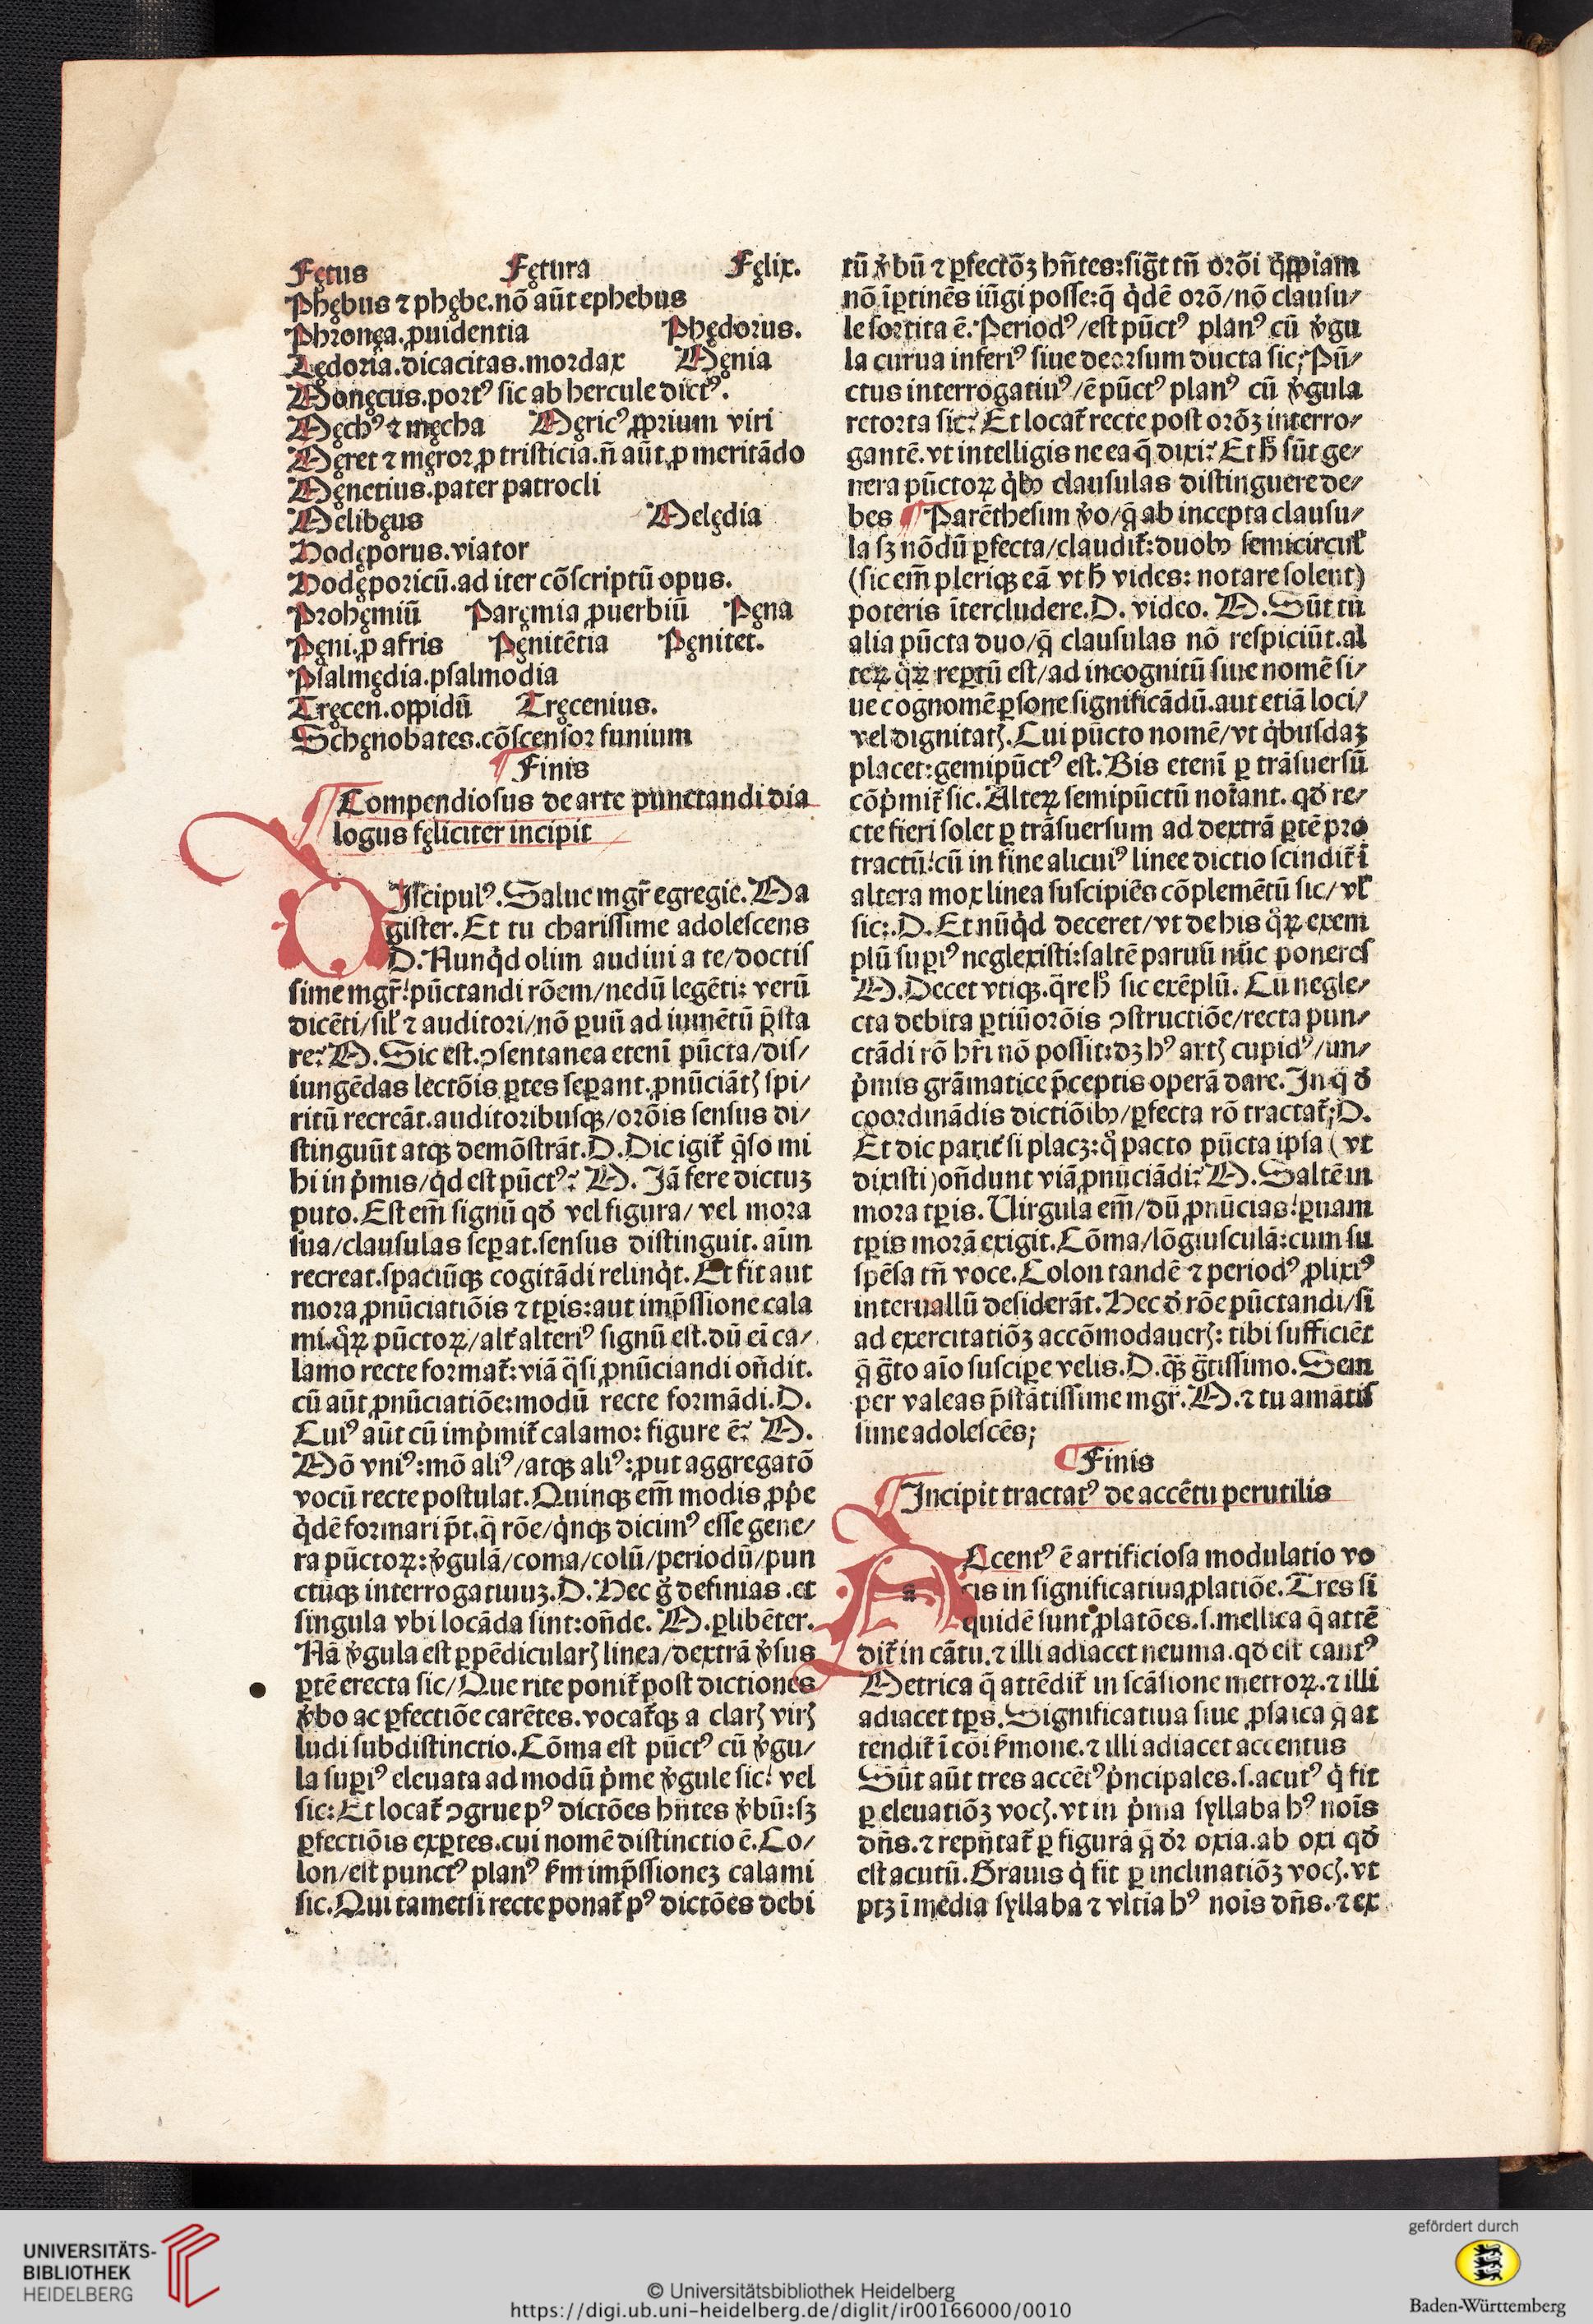 Fętus Fętura Fęlix.
Phębus ⁊ phębe.nō aūt ephebus
Phronęa.ꝓuidentia Phędorus.
Tędoria.dicacitas.mordax Męnia
Monęcus.portꝰ sic ab hercule dictꝰ.
Męchꝰ ⁊ męcha Męricꝰ ꝓprium viri
Męret ⁊ męror ꝓ tristicia.n̄ aūt ꝓ meritādo
Męnetius.pater patrocli
Melibęus Melędia
Hodęporus.viator
Hodęporicū.ad iter cōscriptū opus.
Prohęmiū Paręmia ꝓuerbiū Pęna
Pęni.ꝓ afris Pęnitētia Pęnitet.
Psalmędia.psalmodia
Tręcen.oppidū Tręcenius.
Schęnobates.cōscensor funium
¶ Finis
¶ Compendiosus de arte punctandi dia
logus fęliciter incipit
DIscipulꝰ.Salue mgr̄ egregie.Ma
gister.Et tu charissime adolescens
D.Nunq̇d olim audiui a te/doctis
sime mgr̄!pūctandi rōem/nedū legēti: verū
dicēti/sil̛ ⁊ auditori/nō ꝑuū ad iumētū p̄sta
re? M.Sic est.ꝯsentanea etenī pūcta/dis/
iungēdas lectōis ꝑtes seꝑant.ꝓnūciātꝭ spi/
ritū recreāt.auditoribusqꝫ/orōis sensus di/
stinguūt atqꝫ demōstrāt.D.Dic igit̄ q̄so mi
hi in ṗmis/q̇d est pūctꝰ? M. Jā fere dictuꝫ
puto.Est em̄ signū qď vel figura/ vel mora
sua/clausulas seꝑat.sensus distinguit. aīm
recreat.spaciūqꝫ cogitādi relinq̇t.Et fit aut
mora ꝓnūciatiōis ⁊ tꝑis:aut imp̄ssione cala
mi.q̊ꝝ pūctoꝝ/alt̛ alteriꝰ signū est.dū ei ca/
lamo recte format̄:viā q̄si ꝓnūciandi on̄dit.
cū aūt ꝓnūciatiōe:modū recte formādi.D.
Cuiꝰ aūt cū imṗmit̄ calamo: figure ē? M.
Mō vniꝰ:mō aliꝰ/atqꝫ aliꝰ:ꝓut aggregatō
vocū recte postulat.Quinqꝫ em̄ modis ꝓpe
q̇dē formari p̄t.q̄ rōe/q̇nqꝫ dicimꝰ esse gene/
ra pūctoꝝ:v̛gulā/coma/colū/periodū/pun
ctūqꝫ interrogatiuuꝫ.D.Hec g̊ definias .et
singula vbi locāda sint:on̄de. M.ꝑlibēter.
Nā v̛gula est ꝑpēdicularꝭ linea/dextrā v̛sus
ꝑtē erecta sic/Que rite ponit̄ post dictiones
v̛bo ac ꝑfectiōe carētes.vocat̄qꝫ a clarꝭ virꝭ
ludi subdistinctio.Cōma est pūctꝰ cū v̛gu/
la suꝑiꝰ eleuata ad modū ṗme v̛gule sic! vel
sic: Et locat̄ ꝯgrue pꝰ dictōes hn̄tes v̛bū:sꝫ
ꝑfectiōis exꝑtes.cui nomē distinctio ē.Co/
lon/est punctꝰ planꝰ km̄ imp̄ssioneꝫ calami
sic.Qui tametsi recte ponat̄ pꝰ dictōes debi
tū v̛bū ⁊ ꝑfectōꝫ hn̄tes:sig̅t tn̄ orōi q̇ppiam
nō īꝑtinēs iūgi posse:q̄ q̇dē orō/nō clausu/
le sortita ē.Periodꝰ/est pūctꝰ planꝰ cū v̛gu
la curua inferiꝰ siue deorsum ducta sic; Pū/
ctus interrogatiuꝰ/ē pūctꝰ planꝰ cū v̛gula
retorta sic? Et locat̄ recte post orōꝫ interro/
gantē.vt intelligis ne ea q̄ dixi? Et h̊ sūt ge/
nera pūctoꝝ q̇bꝰ clausulas distinguere de/
bes ¶ Parēthesim v̊o/q̄ ab incepta clausu/
la sꝫ nōdū ꝑfecta/claudit̄:duobꝰ semicircul̛
(sic em̄ pleriqꝫ eā vt h̊ vides: notare solent)
poteris ītercludere.D. video. M.Sūt tn̄
alia pūcta duo/q̄ clausulas nō respiciūt.al
teꝝ q̊ꝝ reꝑtū est/ad incognitū siue nomē si/
ue cognomē ꝑsone significādū.aut etiā loci/
vel dignitatꝭ.Cui pūcto nomē/vt q̇busdaꝫ
placet:gemipūctꝰ est.Bis etenī ꝑ trāsuersū
cōṗmit̄ sic.Alteꝝ semipūctū noīant. qď re/
cte fieri solet ꝑ trāsuersum ad dextrā ꝑtē pro
tractū!cū in fine alicuiꝰ linee dictio scindit̄ ī
altera mox linea suscipiēs cōplemētū sic/ vl̛
sic:.D.Et nūq̇d deceret/vt de his q̊ꝝ exem
plū suꝑiꝰ neglexisti:saltē paruū nūc poneres
M.Decet vtiqꝫ.q̄re h̊ sic exēplū. Cū negle/
cta debita ꝑtiū orōis ꝯstructiōe/recta pun/
ctādi rō hr̄i nō possit:dꝫ hꝰ artꝭ cupidꝰ/un/
ṗmis grāmatice p̄ceptis operā dare.In q̄ ď
coordinādis dictiōibꝰ/ꝑfecta rō tractat̄;D.
Et dic parit̛ si placꝫ:q̊ pacto pūcta ipsa (vt
dixisti)on̄dunt viā ꝓnūciādi? M.Saltē in
mora tꝑis. Uirgula em̄/dū ꝓnūcias!ꝑuam
tꝑis morā exigit.Cōma/lōgiusculā:cum su
spēsa tn̄ voce.Colon tandē ⁊ periodꝰ ꝓlixiꝰ
interuallū desiderāt.Hec ď rōe pūctandi/si
ad exercitatiōꝫ accōmodauerꝭ: tibi sufficiēt
q̄ g̊to aīo suscipe velis.D.qꝫ̄ g̊tissimo.Sem
per valeas p̄stātissime mgr̄.M.⁊ tu amātis
sime adolescēs;
¶ Finis
¶ Incipit tractatꝰ de accētu perutilis
ACcentꝰ ē artificiosa modulatio vo
cis in significatiua ꝓlatiōe.Tres si
quidē sunt ꝓlatōes.s.mellica q̄ attē
dit̄ in cātu.⁊ illi adiacet neuma.qď est cantꝰ
Metrica q̄ attēdit̄ in scāsione metroꝝ.⁊ illi
adiacet tꝑs.Significatiua siue ꝓsaica q̄ at
tendit̄ ī cōi ẜmone.⁊ illi adiacet accentus
Sūt aūt tres accētꝰ ṗncipales.s.acutꝰ q̇ fit
ꝑ eleuatiōꝫ vocꝭ.vt in ṗma syllaba hꝰ noīs
dn̄s.⁊ repn̄tat̄ ꝑ figurā q̄ dr̄ oxia.ab oxi qď
est acutū.Grauis q̇ fit ꝑ inclinatiōꝫ vocꝭ.vt
ptꝫ ī media syllaba ⁊ vltīa hꝰ noīs dn̄s.⁊ ex
UNIVERSITÄTS-
BIBLIOTHEK
HEIDELBERG
© Universitätsbibliothek Heidelberg
https://digi.ub.uni-heidelberg.de/diglit/ir00166000/0010
gefördert durch
Baden-Württemberg